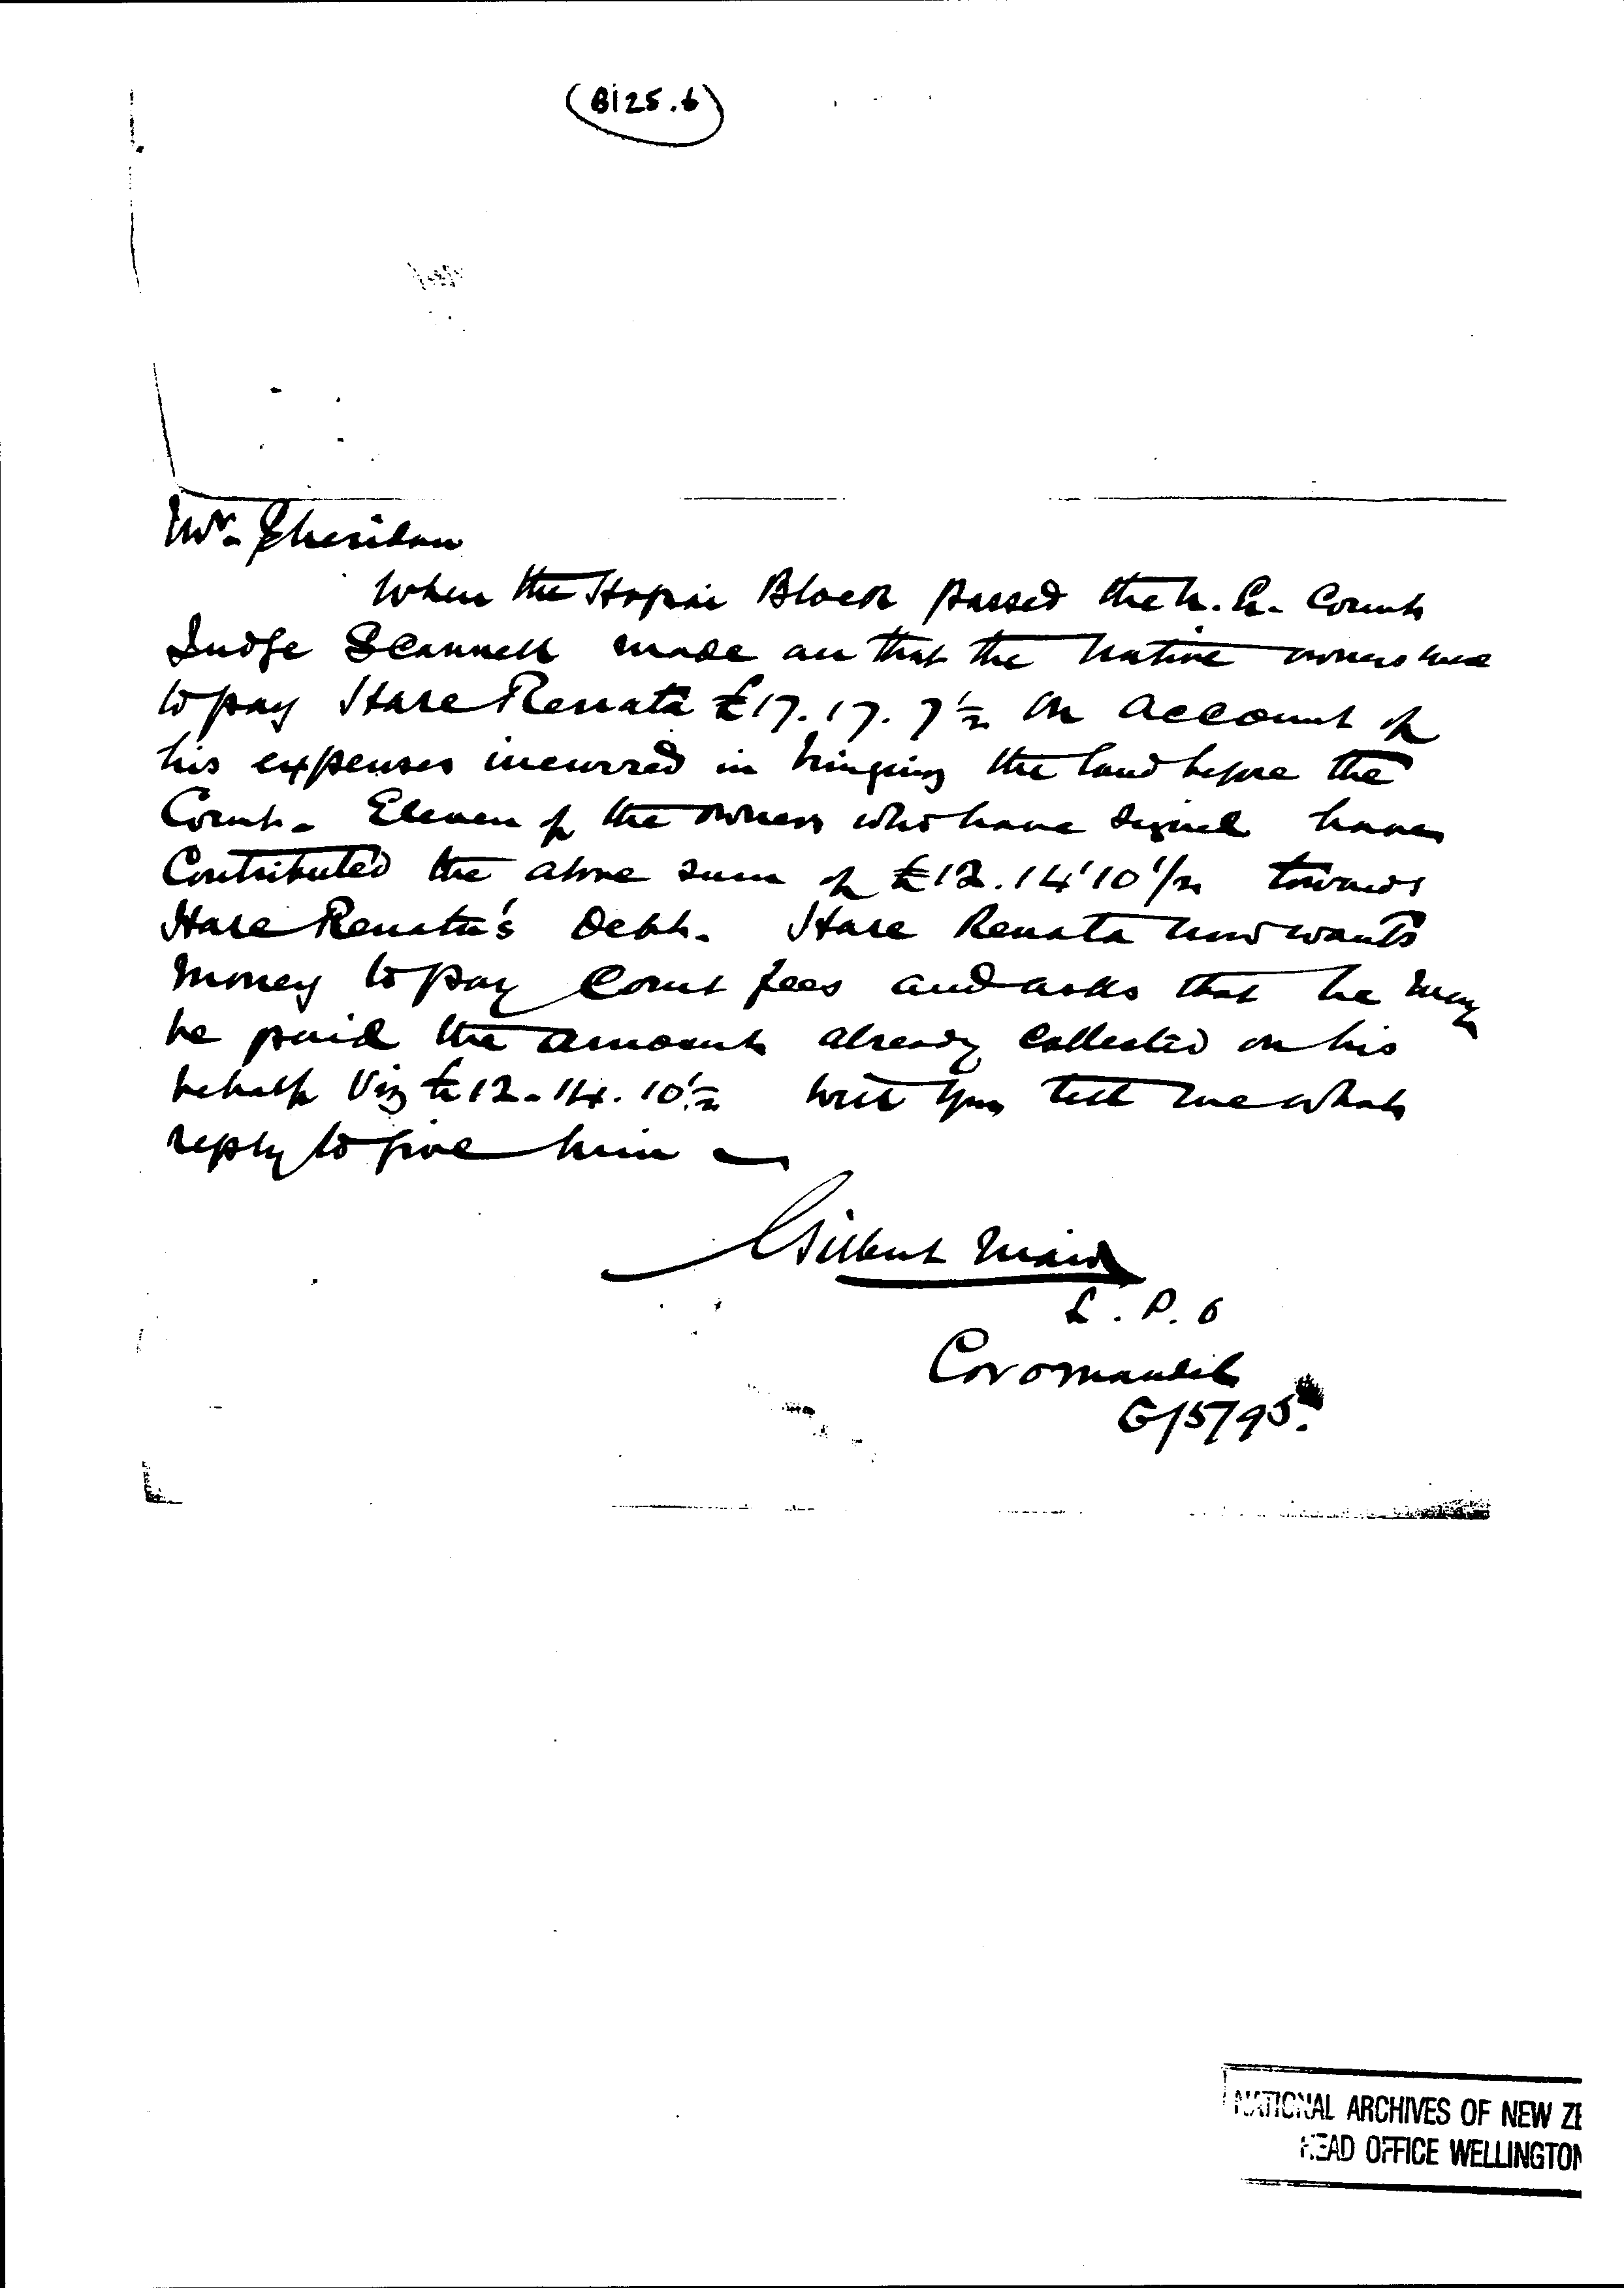 (B125.6)
Mr. Sheridan
When the Hopai Block passed the N. L. Court
Judge Scannell made an that the Native owners were
to pay Hare Renata £17.17.7½ on account of
his expenses incurred in bringing the land before the
Court. Eleven of the owners who have signed have
Contributed the above sum of £12.14.10 1/2 towards
Hare Renata's Debt. Hare Renata now wants
money to pay Court fees and asks that he may
be paid the amount already collected on his
behalf Viz £12.14.10½ Will you tell me what
reply to give him —
Gilbert Mair
L. P. O
Coromandel
6/5/95.
NATIONAL ARCHIVES OF NEW ZE
HEAD OFFICE WELLINGTON